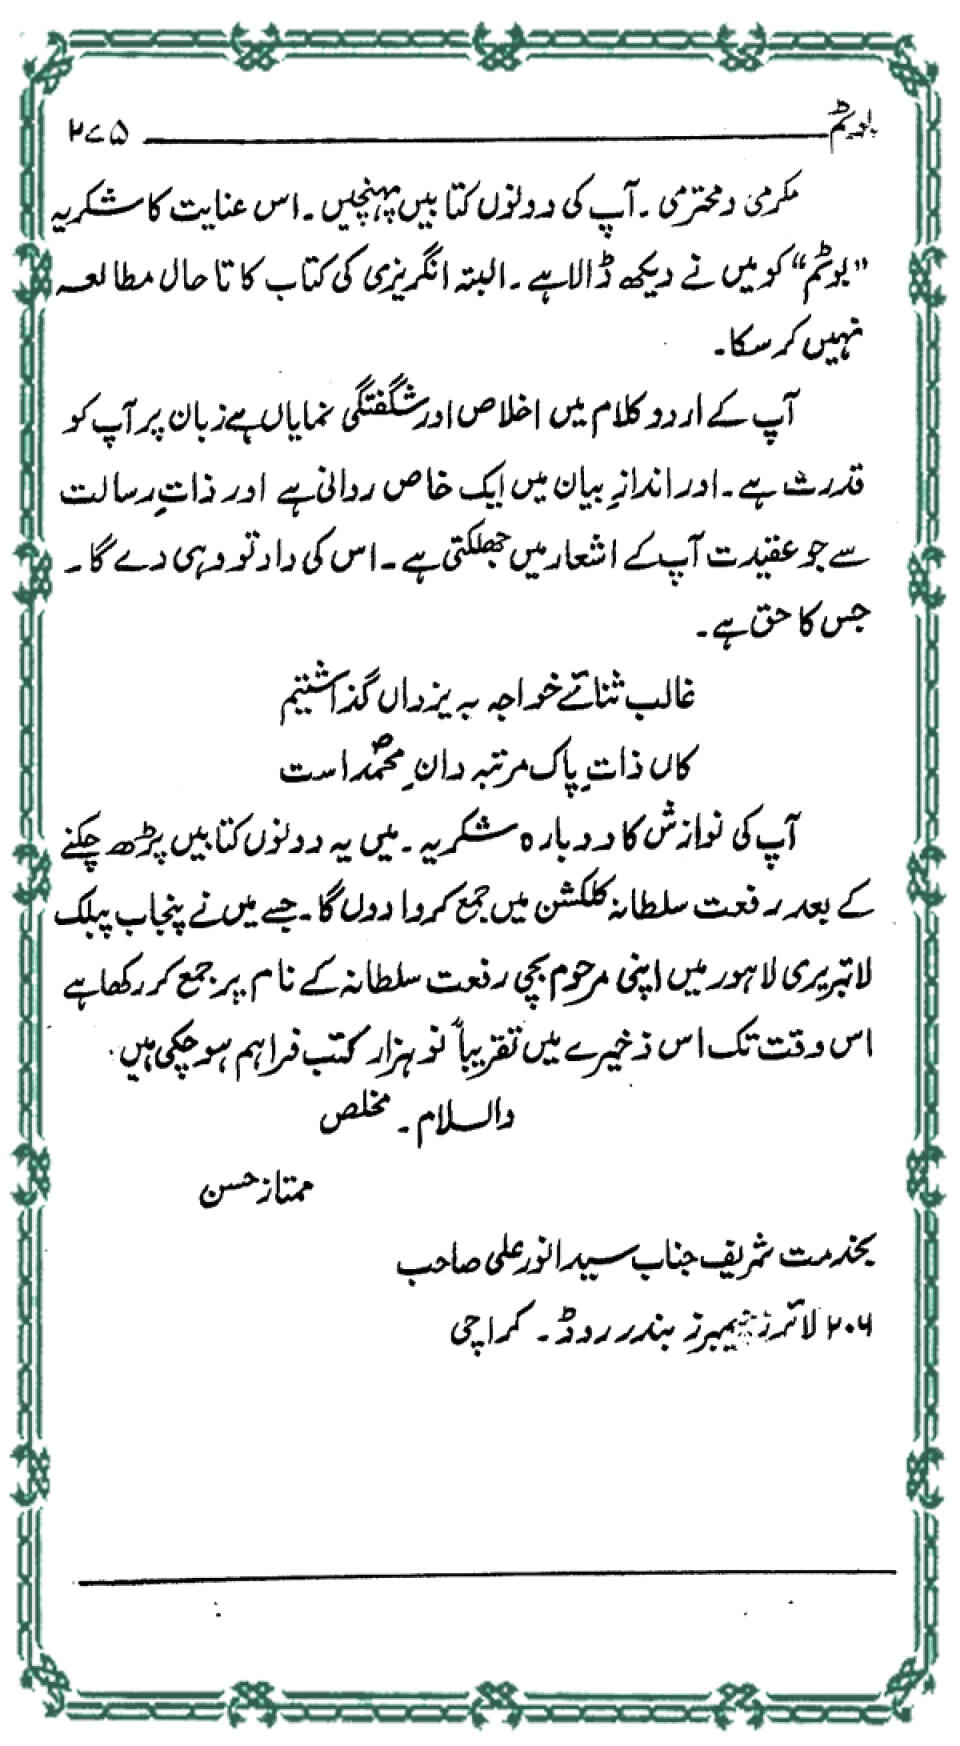 بوٹم ۲۷۵
مکرمی و محترمی ۔ آپ کی دونوں کتابیں پہنچیں ۔ اس عنایت کا شکریہ
”بوٹم“ کو میں نے دیکھ ڈالا ہے ۔ البتہ انگریزی کی کتاب کا تا حال مطالعہ
نہیں کر سکا ۔
آپ کے اردو کلام میں اخلاص اور شگفتگی نمایاں ہے زبان پر آپ کو
قدرت ہے ۔ اور اندازِ بیان میں ایک خاص روانی ہے اور ذاتِ رسالت
سے جو عقیدت آپ کے اشعار میں جھلکتی ہے ۔ اس کی داد تو وہی دے گا ۔
جس کا حق ہے ۔
غالب ثنائے خواجہ بہ یزداں گذاشتیم
کاں ذاتِ پاک مرتبہ دانِ محمدؐ است
آپ کی نوازش کا دوبارہ شکریہ ۔ میں یہ دونوں کتابیں پڑھ چکنے
کے بعد رفعت سلطانہ کلکشن میں جمع کروا دوں گا ۔ جسے میں نے پنجاب پبلک
لائبریری لاہور میں اپنی مرحوم بچی رفعت سلطانہ کے نام پر جمع کر رکھا ہے
اس وقت تک اس ذخیرے میں تقریباً نو ہزار کتب فراہم ہو چکی ہیں ۔
والسلام ۔ مخلص
ممتاز حسن
بخدمت شریف جناب سید انور علی صاحب
۲۰۶ لائرز چیمبرز بندر روڈ ۔ کراچی